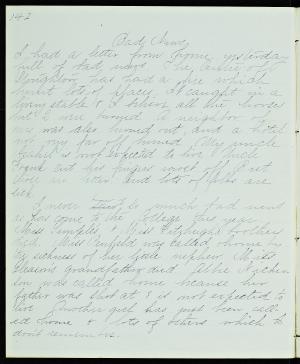 142
Bad News
I had a letter from home yesterday
full of bad news. The center of
Stoughton has had a fire which
burnt lots of places, it caught in a
livery stable & I believe all the horses
but 2 were burned. A neighbor of
my was also burned out, and a hotel
not very far off burned. My uncle
Frank is not expected to live & Uncle
his fingers
and lots of folks are
sick.
I never knew so much bad news
as has come to the College this year.
Miss Temples, & Miss Fitzhugh's brothers
died. Miss Penfield was called home
by sickness of her little nephew. Miss
Gleasons grandfather died. Abbie
was called home because her
father was shot at & is not expected to
live. Another girl has just been call-
ed home & lots of others which I
don't remember.